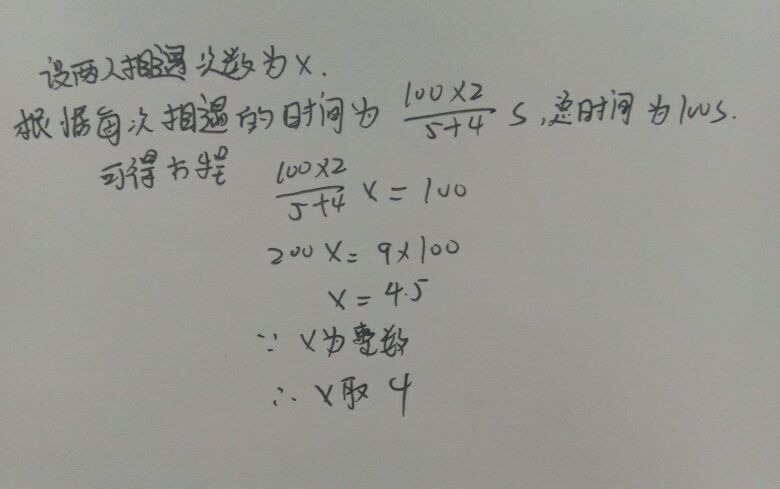 设两人相遇次数为x.
根据每次相遇的时间为 \frac{100×2}{5+4} s,总时间为100s.
可得方程
\frac{100×2}{5+4} x = 100
200x = 9×100
x = 4.5
∵ x为整数
∴ x取 4